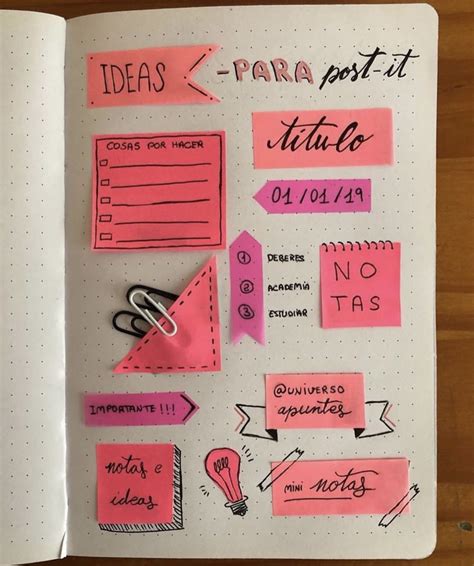 IDEAS -PARA post-it
COSAS POR HACER
título
01/01/19
1 DEBERES
2 ACADEMÍA
3 ESTUDIAR
NO
TAS
IMPORTANTE!!!
@UNIVERSO
apuntes
notas e
ideas
MINI notas